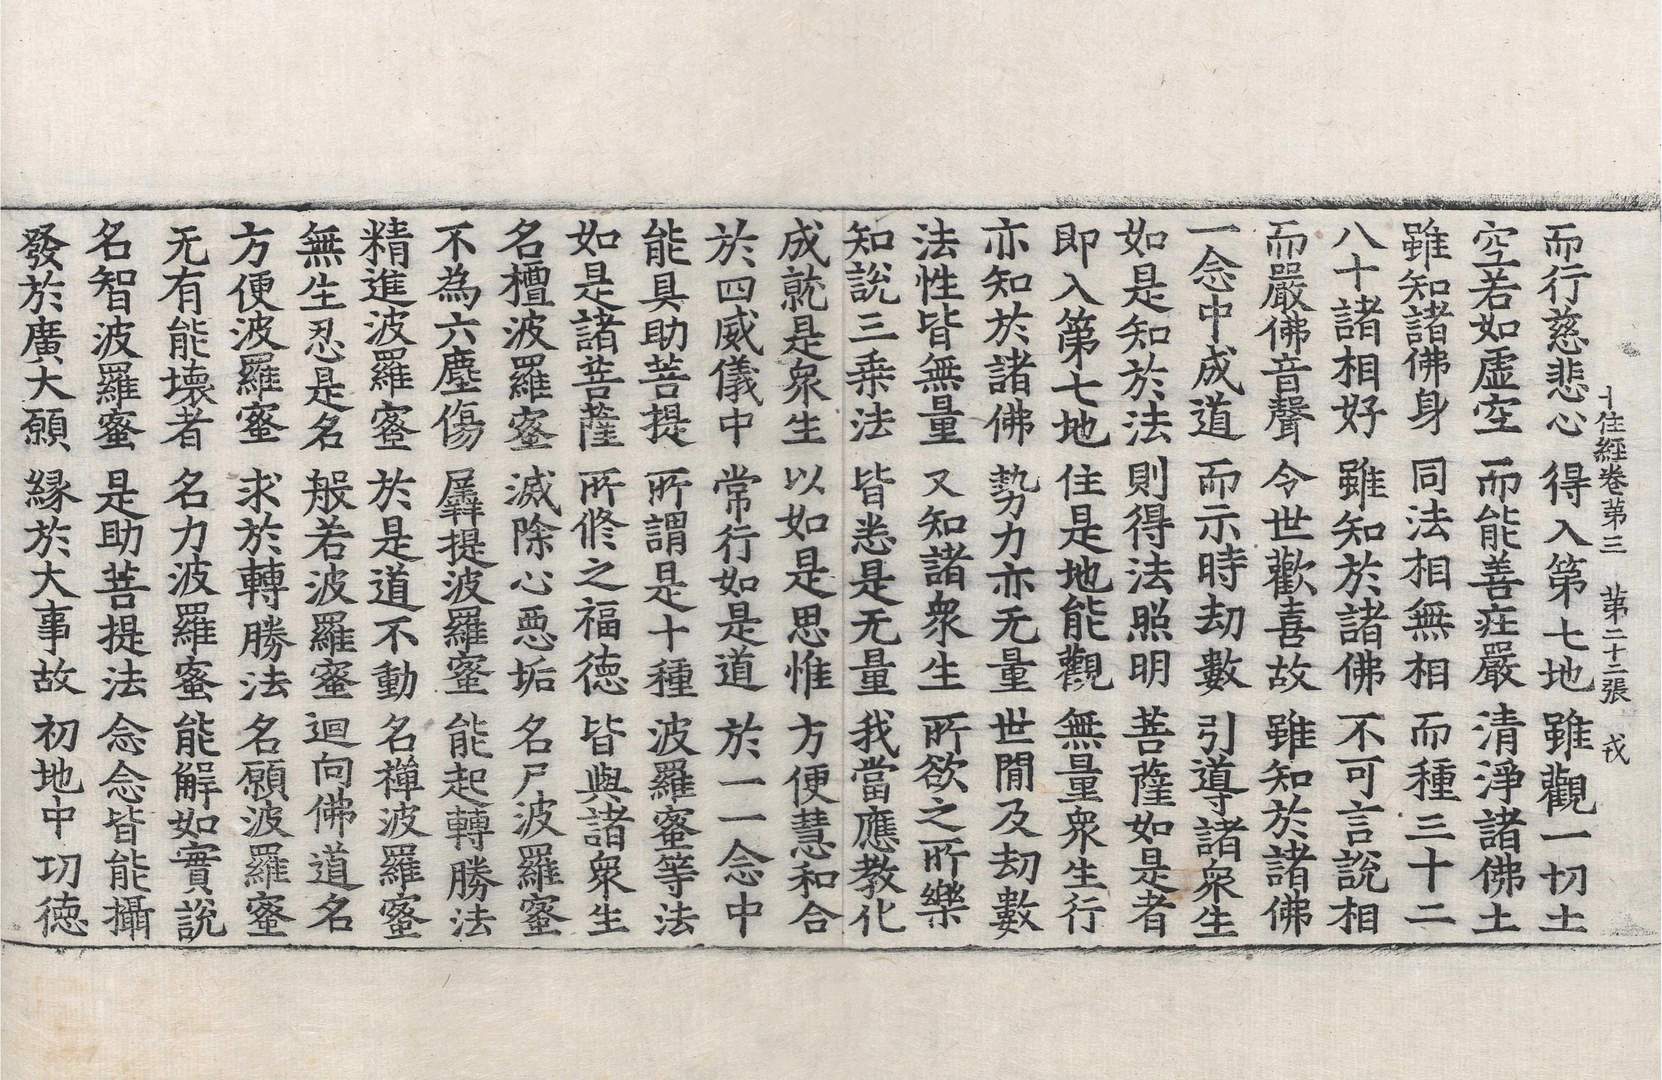 十住經卷第三　第二十二張　戎
而行慈悲心　得入第七地　雖觀一切土
空若如虛空　而能善庄嚴　清淨諸佛土
雖知諸佛身　同法相無相　而種三十二
八十諸相好　雖知於諸佛　不可言說相
而嚴佛音聲　令世歡喜故　雖知於諸佛
一念中成道　而示時劫數　引導諸衆生
如是知於法　則得法照明　菩薩如是者
即入第七地　住是地能觀　無量衆生行
亦知於諸佛　勢力亦无量　世閒及劫數
法性皆無量　又知諸衆生　所欲之所樂
知說三乘法　皆悉是无量　我當應教化
成就是衆生　以如是思惟　方便慧和合
於四威儀中　常行如是道　於一一念中
能具助菩提　所謂是十種　波羅蜜等法
如是諸菩薩　所修之福德　皆與諸衆生
名檀波羅蜜　滅除心惡垢　名尸波羅蜜
不為六塵傷　羼提波羅蜜　能起轉勝法
精進波羅蜜　於是道不動　名禪波羅蜜
無生忍是名　般若波羅蜜　迴向佛道名
方便波羅蜜　求於轉勝法　名願波羅蜜
无有能壞者　名力波羅蜜　能解如實說
名智波羅蜜　是助菩提法　念念皆能攝
發於廣大願　緣於大事故　初地中功德